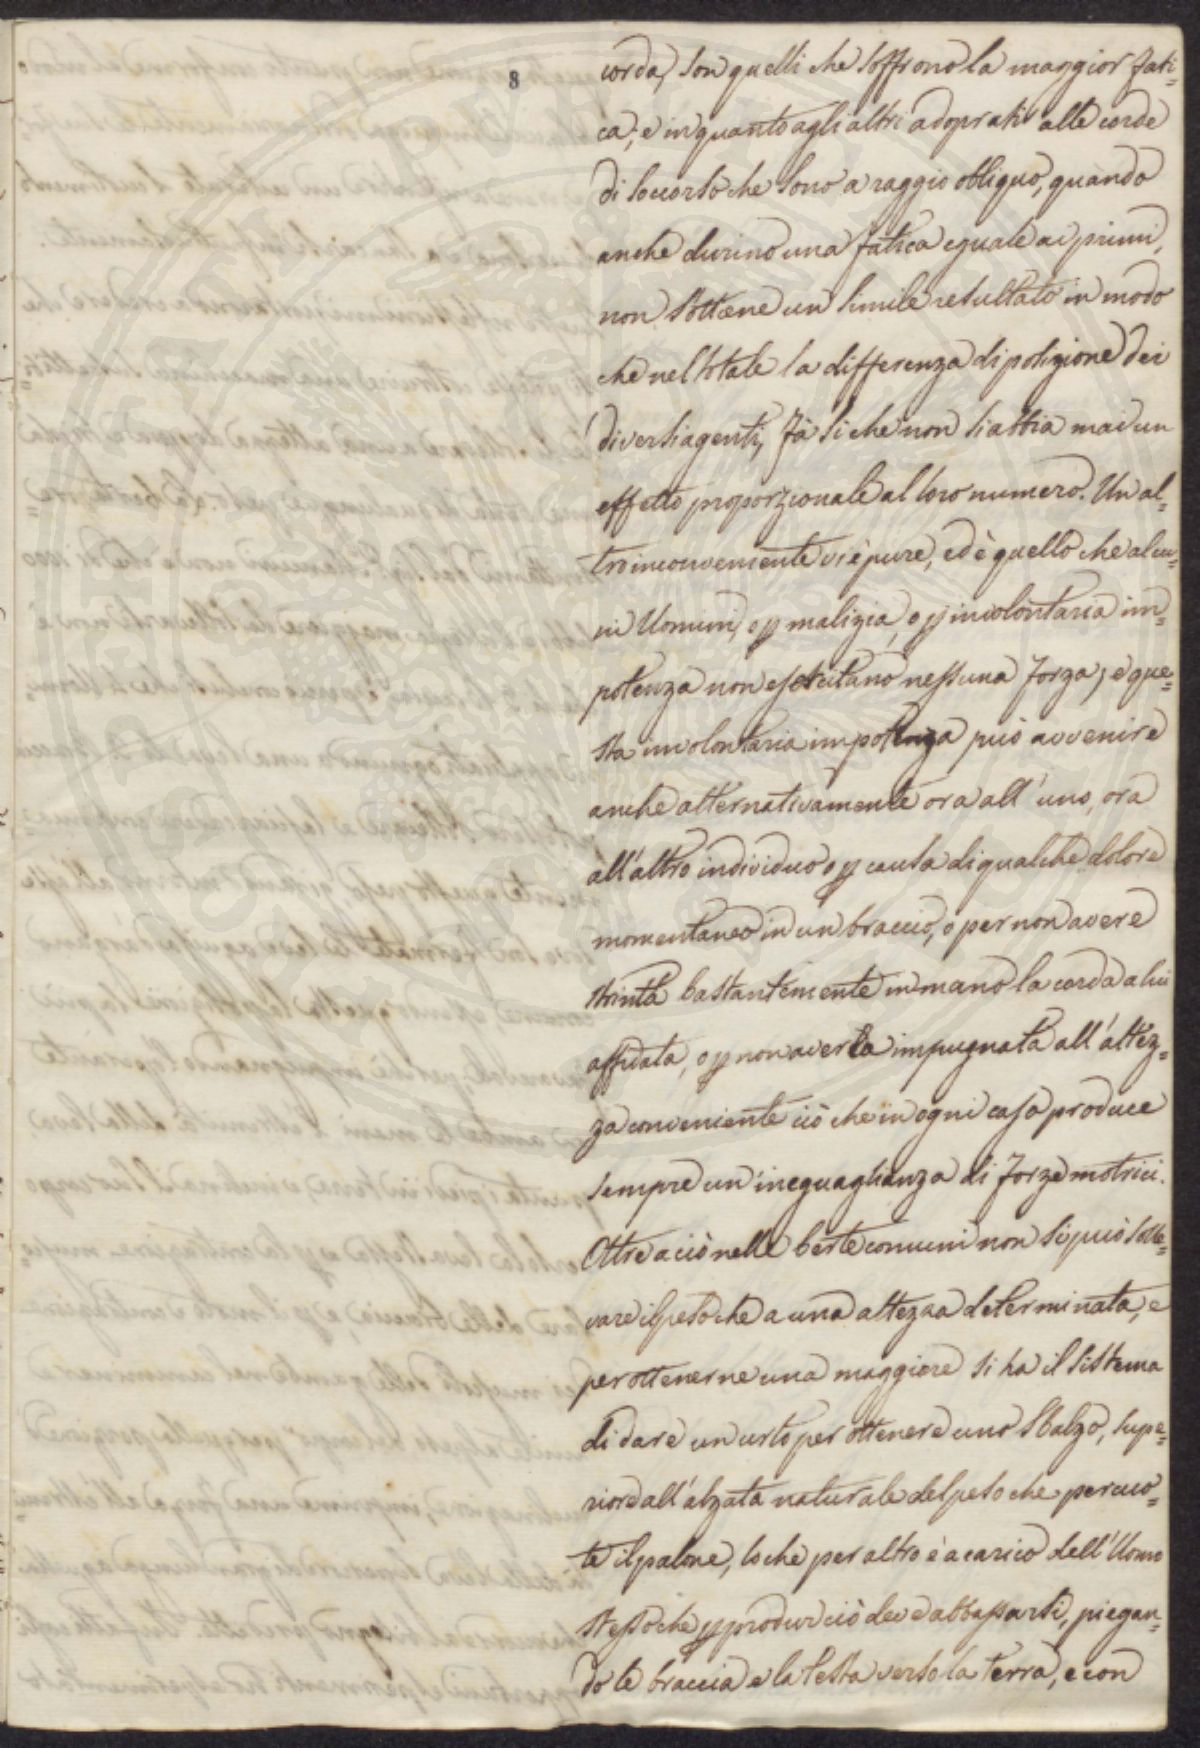 8
corda, son quelli che soffrono la maggior fati=
ca; e in quanto agli altri adoprati alle corde
di soccorso che sono a raggio obliquo, quando
anche durino una fatica eguale ai primi,
non s'ottiene un simile resultato in modo
che nel totale la differenza di posizione dei
diversi agenti, fà si che non si abbia mai un
effetto proporzionale al loro numero. Un al=
tro inconveniente vi è pure, ed è quello che alcu=
ni Uomini, o p malizia, o p involontaria im=
potenza non esercitano nessuna forza; e que=
sta involontaria impotenza può avvenire
anche alternativamente ora all'uno, ora
all'altro individuo o p causa di qualche dolore
momentaneo in un braccio, o per non avere
strinta bastantemente in mano la corda a lui
affidata, o p non averla impugnata all'altez=
za conveniente ciò che in ogni caso produce
sempre un'ineguaglianza di forze motrici.
Oltre a ciò nelle berte comuni non si può solle=
vare il peso che a una altezza determinata, e
per ottenerne una maggiore si ha il sistema
di dare un urto per ottenere uno sbalzo, supe=
riore all'alzata naturale del peso che percuo=
te il palone, lo che per altro è a carico dell'Uomo
stesso che p produr ciò deve abbassarsi, piegan=
do le braccia e la testa verso la terra, e con